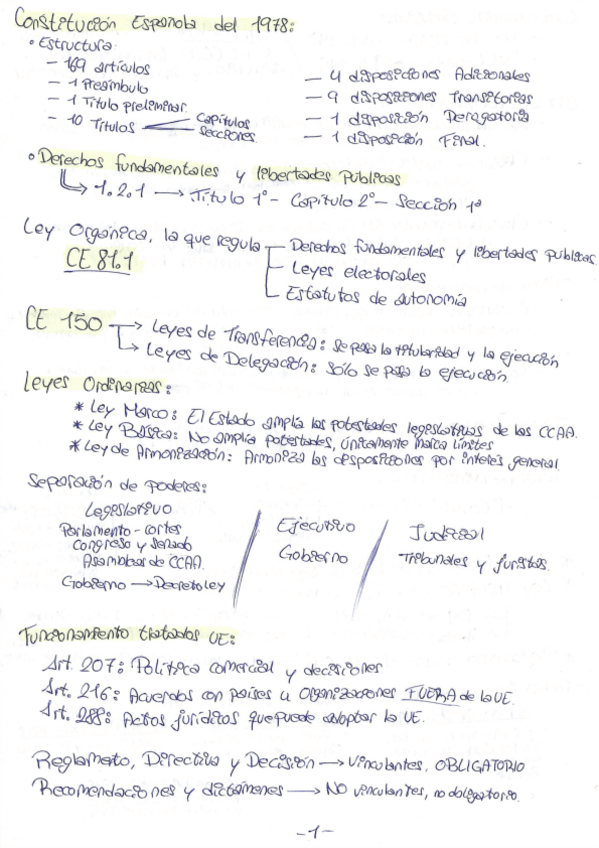 Constitución Española del 1978:
• Estructura:
– 169 artículos
– 1 Preámbulo
– 1 Título preliminar
– 10 Títulos Capítulos Secciones
– 4 disposiciones Adicionales
– 9 disposiciones Transitorias
– 1 disposición Derogatoria
– 1 disposición Final.
• Derechos fundamentales y libertades publicas
→ 1.2.1 → Título 1º – Capítulo 2º – Sección 1ª
Ley Orgánica, la que regula – Derechos fundamentales y libertades publicas
CE 81.1 – Leyes electorales
– Estatutos de autonomía
CE 150 → Leyes de Transferencia: se pasa la titularidad y la ejecución
→ Leyes de Delegación: sólo se pasa la ejecución.
Leyes Ordinarias:
* Ley Marco: El Estado amplía las potestades legislativas de las CCAA.
* Ley Básica: No amplía potestades, únicamente marca límites
* Ley de Armonización: Armoniza las disposiciones por interés general.
Separación de poderes:
Legislativo
Parlamento - cortes
Congreso y senado
Asambleas de CCAA.
Gobierno → Decreto ley
Ejecutivo
Gobierno
Judicial
Tribunales y juristas.
Funcionamiento tratados UE:
Art. 207: Política comercial y decisiones
Art. 216: Acuerdos con países u organizaciones FUERA de la UE.
Art. 288: Actos jurídicos que puede adoptar la UE.
Reglamento, Directiva y Decisión → vinculantes, OBLIGATORIO
Recomendaciones y dictámenes → NO vinculantes, no obligatorio.
-1-